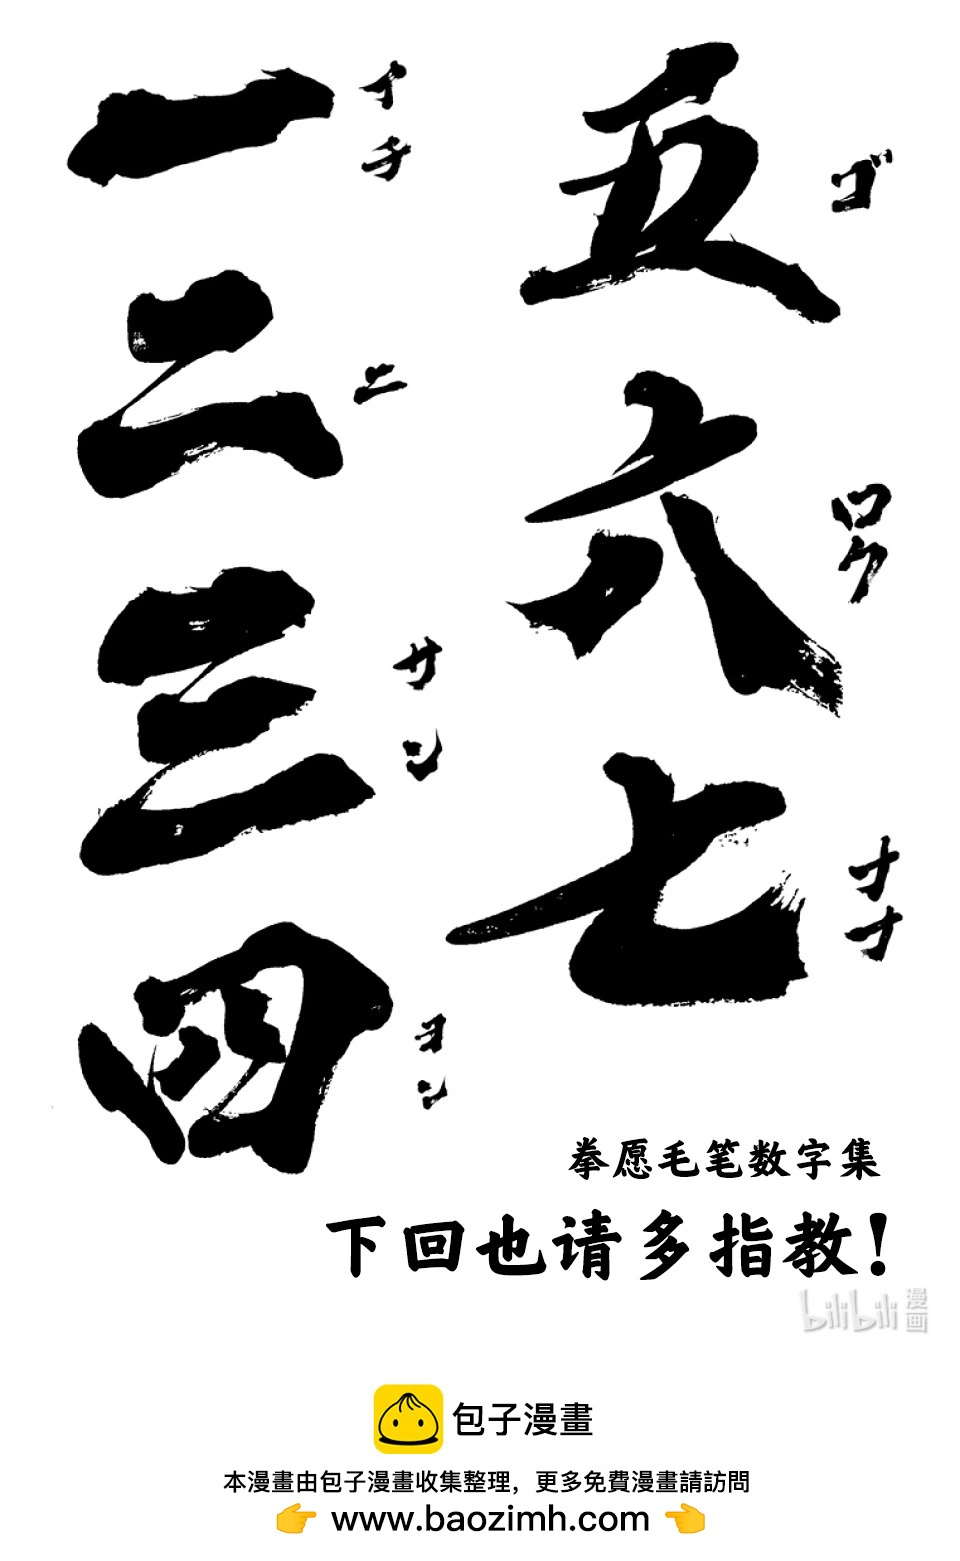 一 イチ
二 ニ
三 サン
四 ヨン
五 ゴ
六 ロク
七 ナナ
拳愿毛笔数字集
下回也请多指教!
bilibili 漫画
包子漫畫
本漫畫由包子漫畫收集整理，更多免費漫畫請訪問
👉 www.baozimh.com 👈